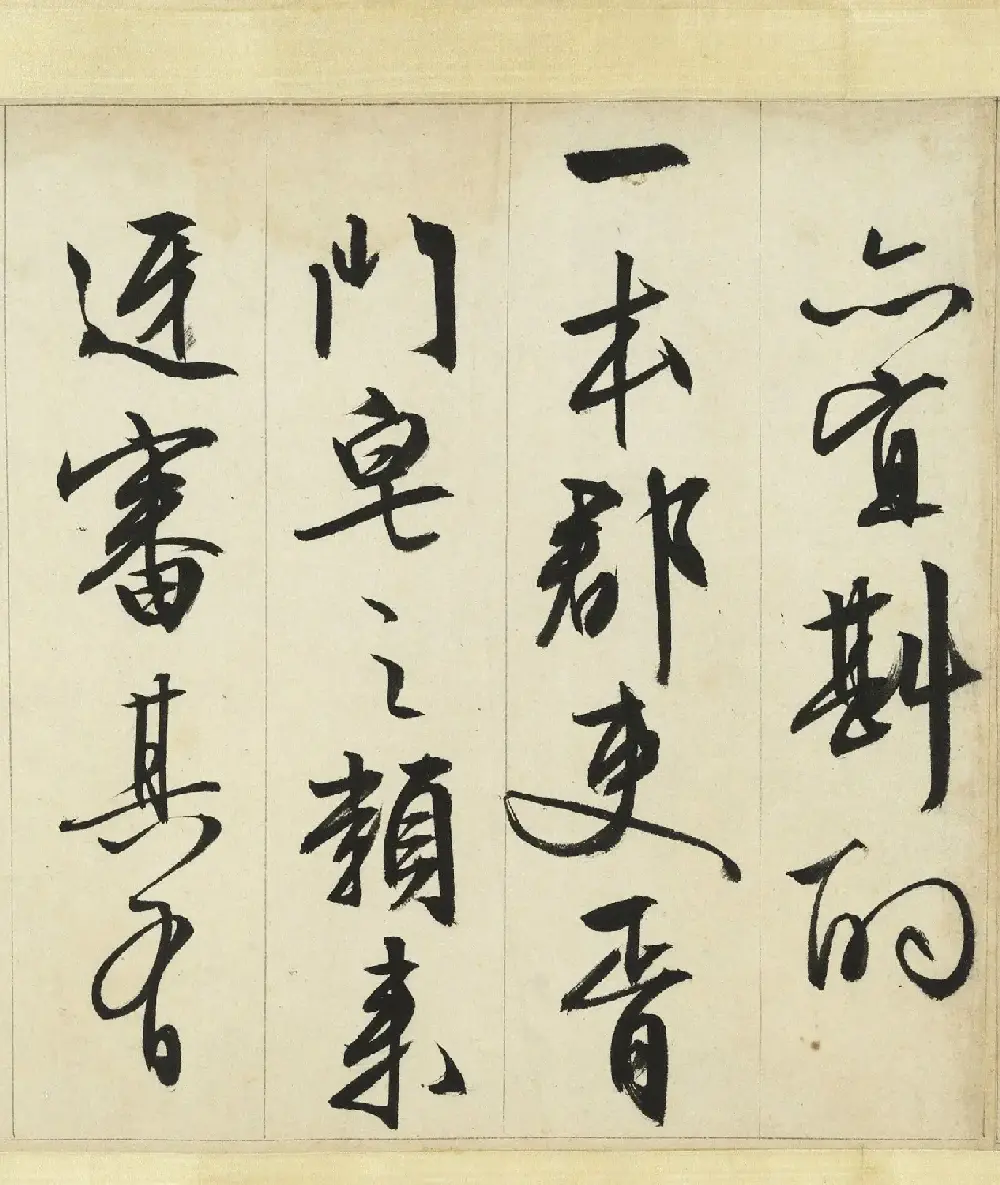 亦宜斟酌
一本郡吏胥
門皂之類來
迓審其有